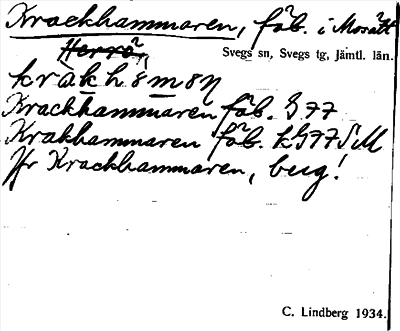 Krackhammaren, fäb. i Morätt
Herrö,
Svegs sn, Svegs tg, Jämtl. län.
krak h8m8n
Krackhammaren fäb. G77
Krakhammaren fäb. k G77 SM
Jfr Krackhammaren, berg!
C. Lindberg 1934.